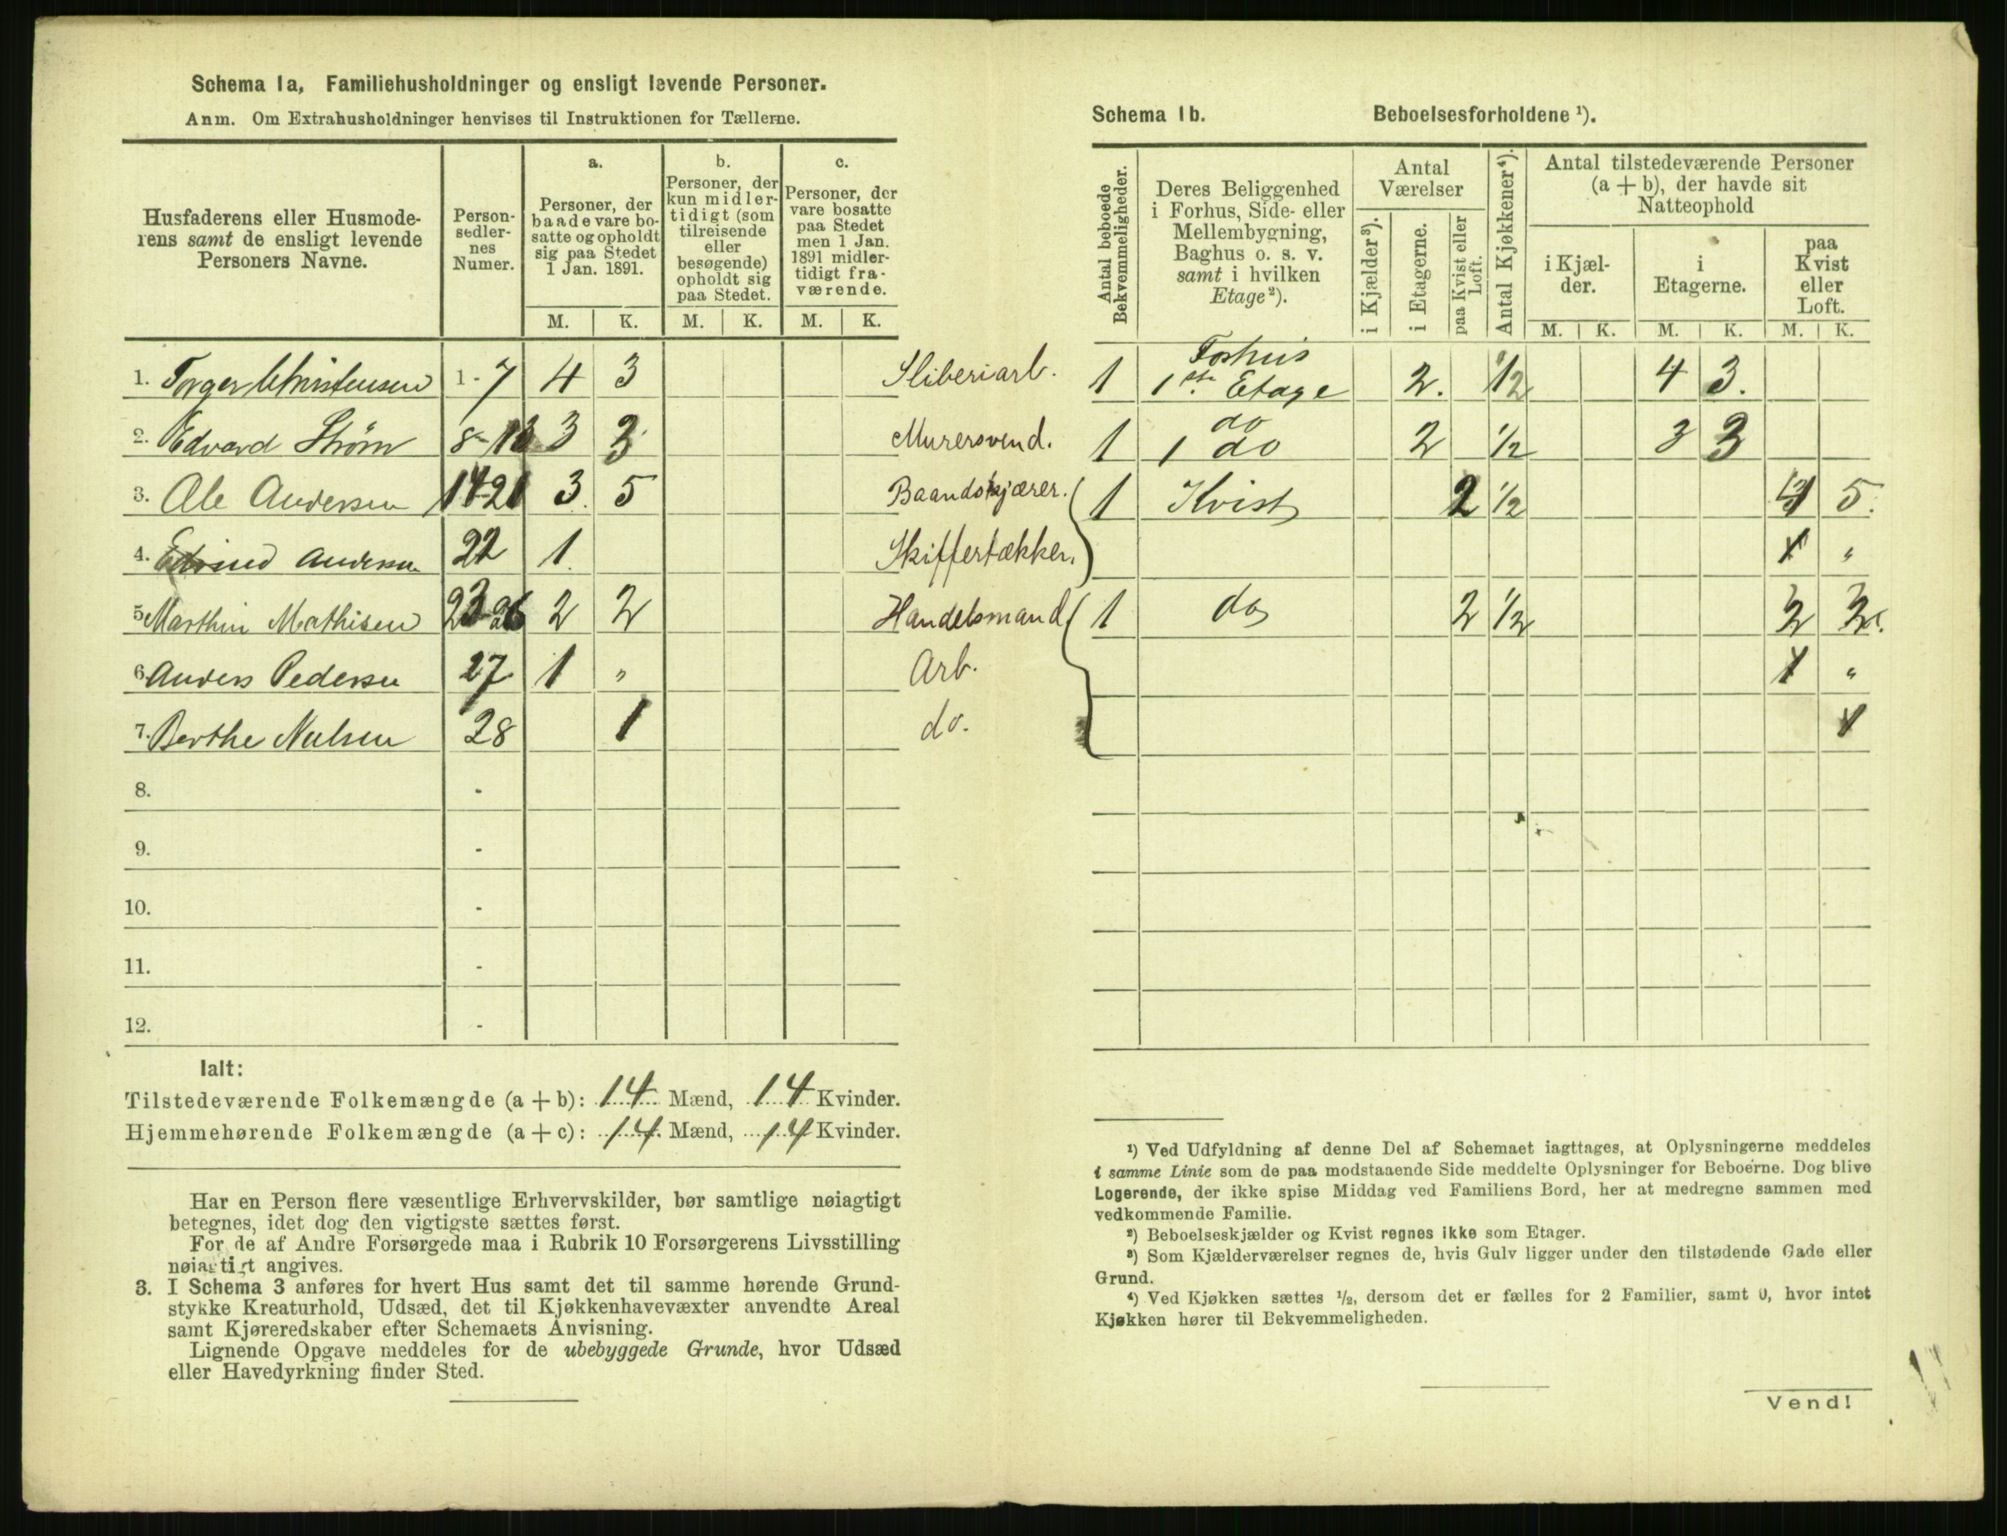 Schema 1a, Familiehusholdninger og ensligt levende Personer.
Anm. Om Extrahusholdninger henvises til Instruktionen for Tællerne.
Husfaderens eller Husmode-
rens samt de ensligt levende
Personers Navne.
Person-
sedler-
nes
Numer.
a.
Personer, der
baade vare bo-
satte og opholdt
sig paa Stedet
1 Jan. 1891.
b.
Personer, der
kun midler-
tidigt (som
tilreisende
eller
besøgende)
opholdt sig
paa Stedet.
c.
Personer, der
vare bosatte
paa Stedet
men 1 Jan.
1891 midler-
tidigt fra-
værende.
M. K. M. K. M. K.
1. Torger Christensen 1-7 4 3 Sliberiarb.
2. Edvard Strøm 8-13 3 3 Murersvend.
3. Ole Andersen 14-21 3 5 Baandskjærer.
4. Andersen 22 1. Skiffertækker.
5 Marthin Mathisen 23-26 2 2 Handelsmand
6 Anders Pedersen 27 1 " Arb.
7. Berthe Nielsen 28 1 do.
8. -
9. -
10. -
11. -
12. -
Ialt:
Tilstedeværende Folkemængde (a + b): 14 Mænd, 14 Kvinder.
Hjemmehørende Folkemængde (a + c): 14 Mænd, 14 Kvinder.
Har en Person flere væsentlige Erhvervskilder, bør samtlige nøiagtigt
betegnes, idet dog den vigtigste sættes først.
For de af Andre Forsørgede maa i Rubrik 10 Forsørgerens Livsstilling
nøiagtigt angives.
3. I Schema 3 anføres for hvert Hus samt det til samme hørende Grund-
stykke Kreaturhold, Udsæd, det til Kjøkkenhavevæxter anvendte Areal
samt Kjøreredskaber efter Schemaets Anvisning.
Lignende Opgave meddeles for de ubebyggede Grunde, hvor Udsæd
eller Havedyrkning finder Sted.
Schema 1b. Beboelsesforholdene ¹).
Antal beboede
Bekvemmeligheder.
Deres Beliggenhed
i Forhus, Side- eller
Mellembygning,
Baghus o. s. v.
samt i hvilken
Etage²).
Antal
Værelser
i Kjælder³).
i Etagerne.
paa Kvist eller
Loft.
Antal Kjøkkener⁴).
Antal tilstedeværende Personer
(a + b), der havde sit
Natteophold
i Kjæl-
der.
i
Etagerne.
paa
Kvist
eller
Loft.
M. K. M. K. M. K.
1 Forhus
1ste Etage 2. 1/2 4 3.
1 do
1 do 2 1/2 3 3
1 Kvist 2 1/2 4 5.
1 "
1 do 2 1/2 3 3.
1 "
1
¹) Ved Udfyldning af denne Del af Schemaet iagttages, at Oplysningerne meddeles
i samme Linie som de paa modstaaende Side meddelte Oplysninger for Beboerne. Dog blive
Logerende, der ikke spise Middag ved Familiens Bord, her at medregne sammen med
vedkommende Familie.
²) Beboelseskjælder og Kvist regnes ikke som Etager.
³) Som Kjælderværelser regnes de, hvis Gulv ligger under den tilstødende Gade eller
Grund.
⁴) Ved Kjøkken sættes ½, dersom det er fælles for 2 Familier, samt 0, hvor intet
Kjøkken hører til Bekvemmeligheden.
Vend!